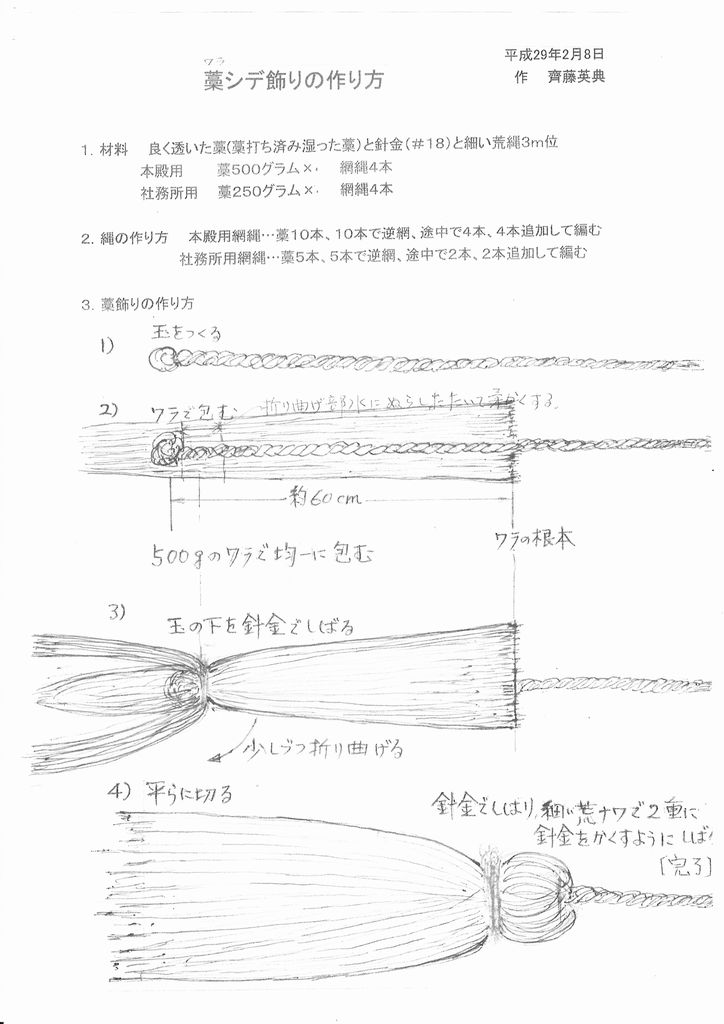 平成29年2月8日
ワラ
藁シデ飾りの作り方
作　齊藤英典
1. 材料　良く透いた藁(藁打ち済み湿った藁)と針金(#18)と細い荒縄3m位
本殿用　藁500グラム×　網縄4本
社務所用　藁250グラム×　網縄4本
2. 縄の作り方　本殿用網縄…藁10本、10本で逆網、途中で4本、4本追加して編む
社務所用網縄…藁5本、5本で逆網、途中で2本、2本追加して編む
3. 藁飾りの作り方
1) 玉をつくる
2) ワラで包む　折り曲げ部水にぬらしたたいて柔かくする。
約60cm
ワラの根本
500gのワラで均一に包む
3) 玉の下を針金でしばる
少しづつ折り曲げる
4) 平らに切る
針金でしばり、細い荒ナワで2重に
針金をかくすようにしば
[完了]